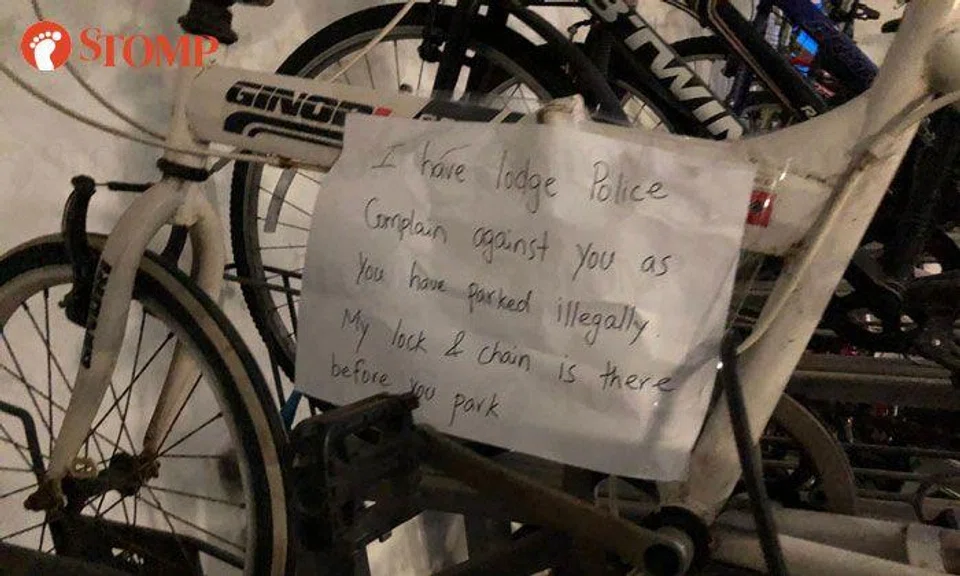 STOMP
GINOP
BTWIN
I have lodge Police
Complain against you as
you have parked illegally.
My lock & chain is there
before you park